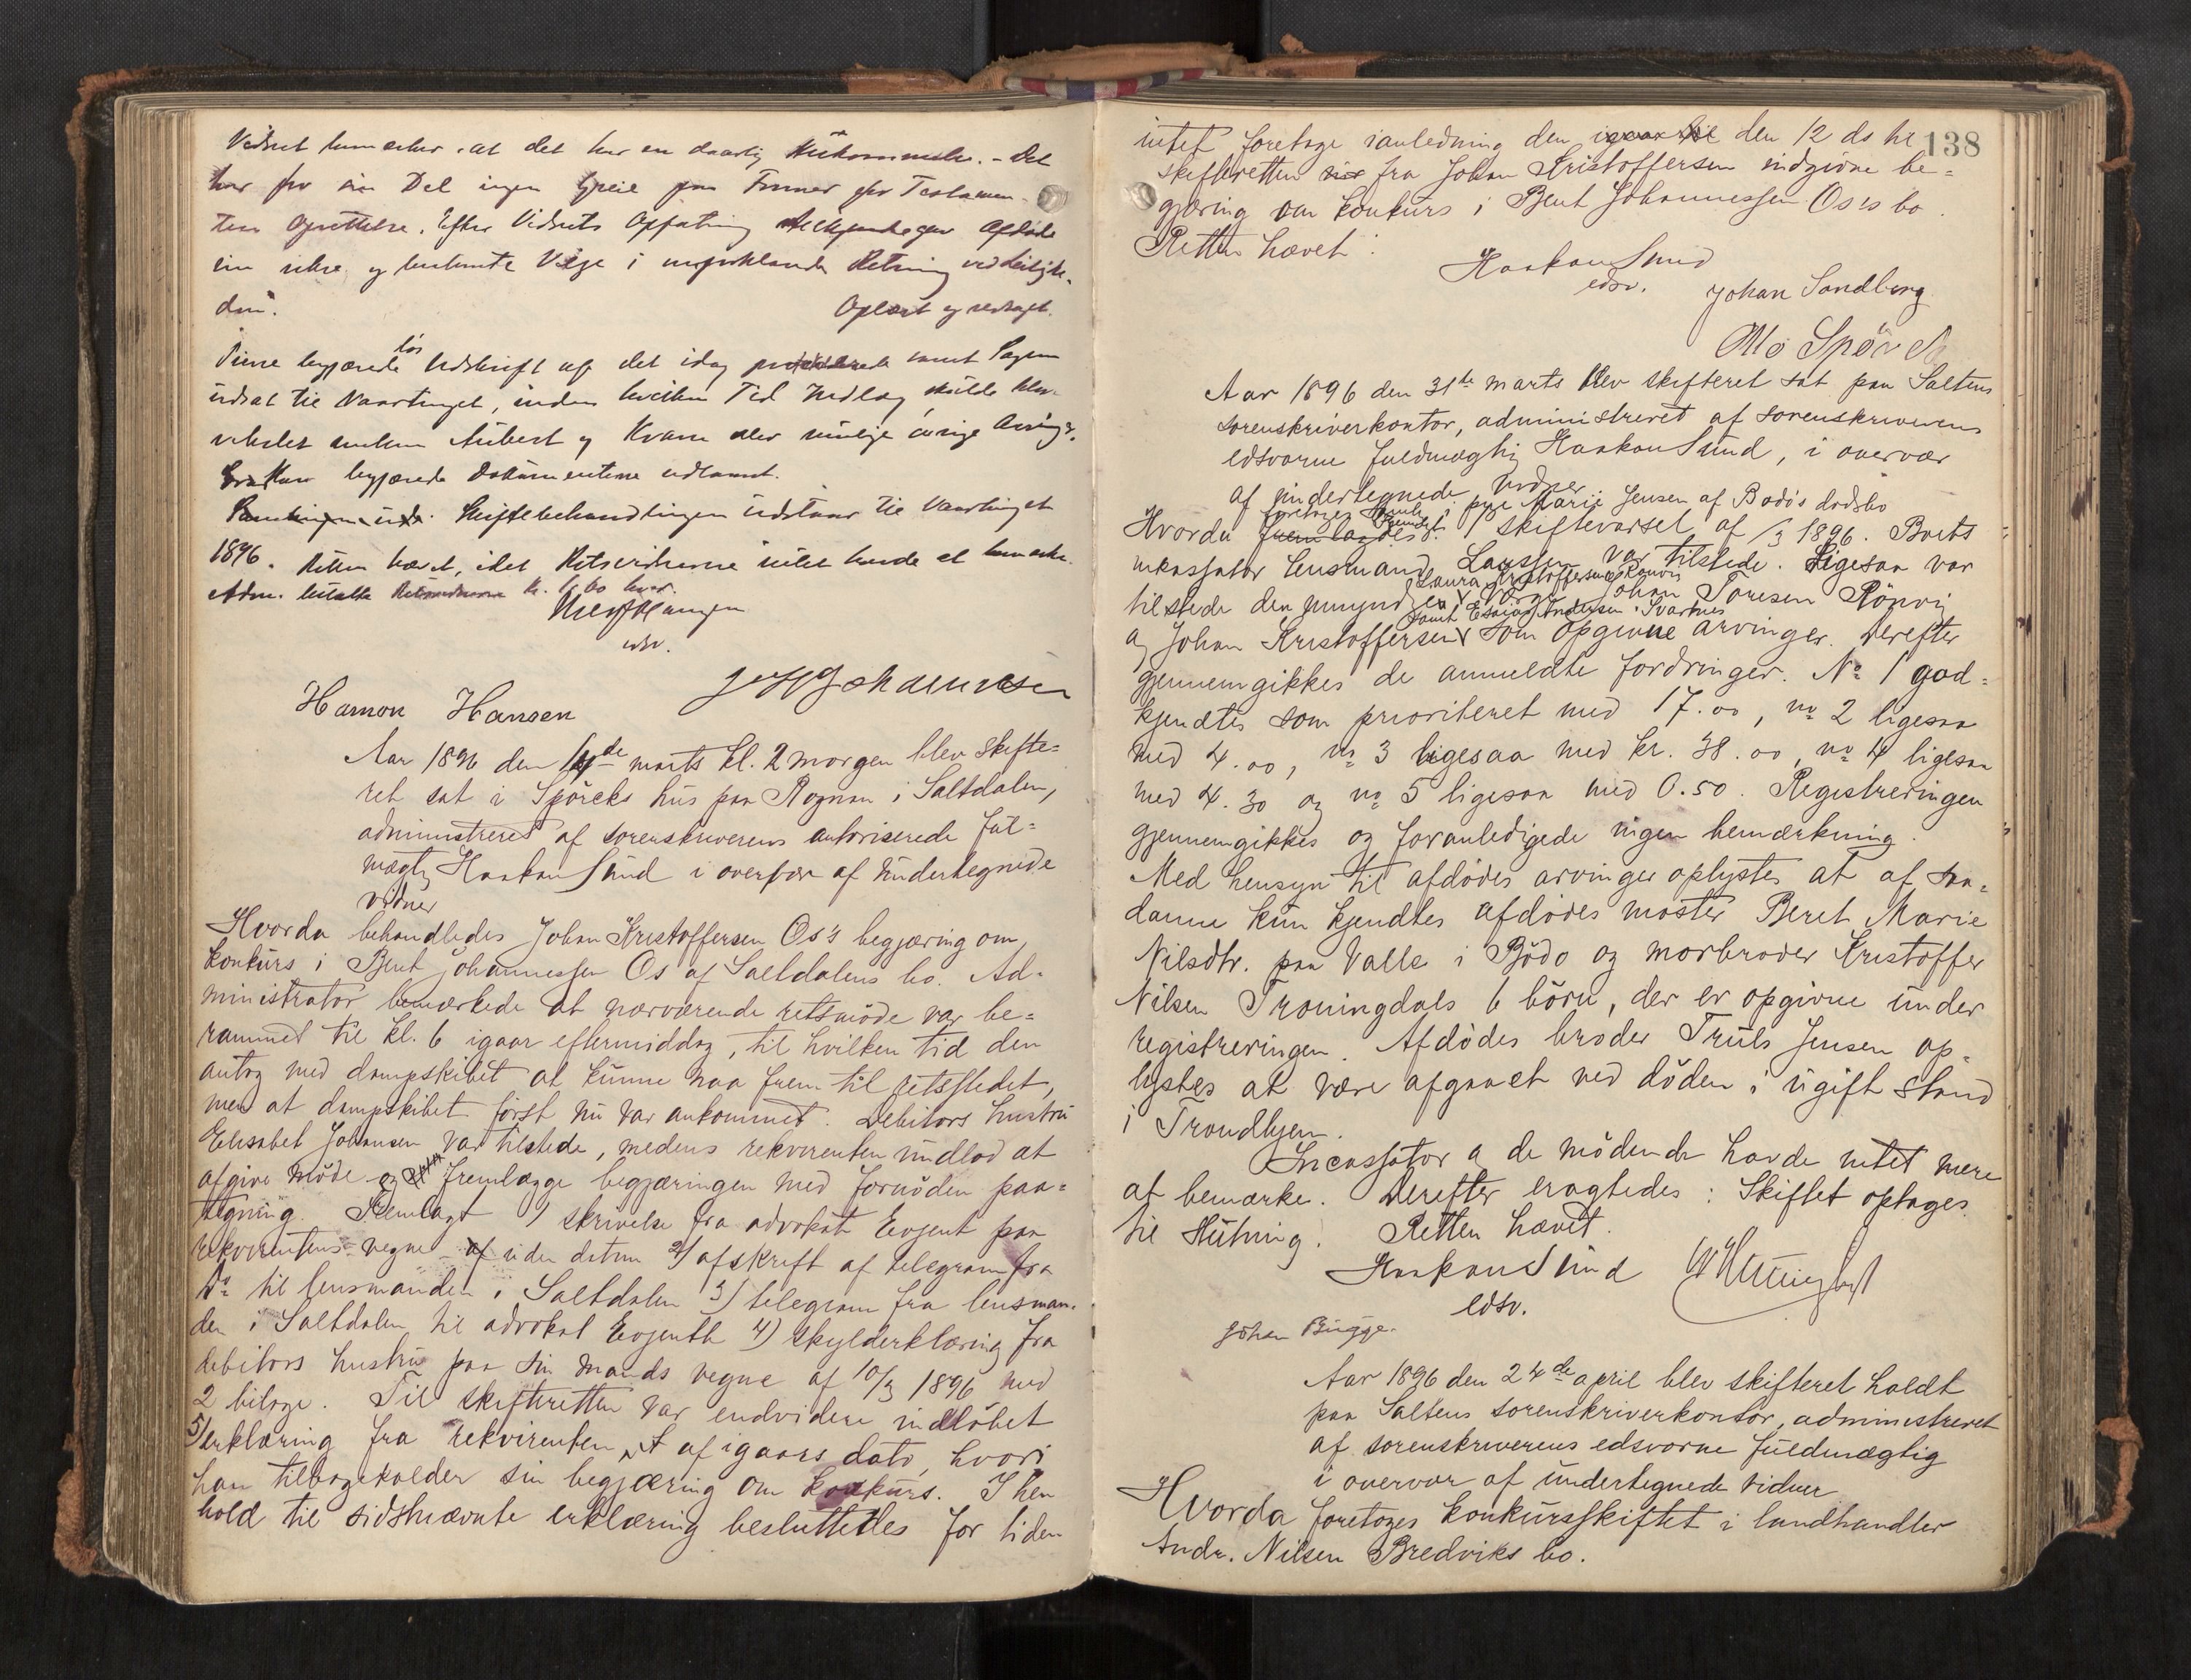 Vidnet bemærker, at det har en daarlig Hukommelse. - Det
har for sin Del ingen Greie paa Formen for Testamen-
tets Oprettelse. Efter Vidnets Opfatning tilkjendegav Afdøde
sin sikre og bestemte Vilje i Retning ved Leilighe-
den. Oplæst og vedtaget.
begjærede Udskrift af det idag samt Sagen
udsat til Vaartinget, inden hvilken Tid Indlæg skulde
mellem Aubert og Kvam øvrige Arvinger.
begjærede Dokumenterne udlaant.
Skiftebehandlingen udstaar til Vaartinget
1896. Retten hævet, idet Retsvidnerne intet havde at bemærke.
Adm. betalte Retsvidnerne kr. hver.
edsv.
Hamon Hansen
Aar 1896 den 14de marts kl. 2 morgen blev skifte=
ret sat i Spörcks hus paa Rognan i Saltdalen,
administreret af sorenskriverens autoriserede ful=
mægtig Haakon Sund i overvær af undertegnede
vidner
Hvorda behandledes Johan Kristoffersen Os's begjæring om
konkurs i Bent Johannessen Os af Saltdalens bo. Ad=
ministrator bemærkede at nærværende retsmöde var be=
rammet til kl. 6 igaar eftermiddag, til hvilken tid den
antog med dampskibet at kunne naa frem til retsstedet,
men at dampskibet först nu var ankommet. Debitors hustru
Elisabet Johansen var tilstede, medens rekvirenten undlod at
afgive möde og fremlægge begjæringen med fornöden paa=
tegning. Fremlagt 1) skrivelse fra advokat Evjent paa
rekvirentens vegne uden datum 2) afskrift af telegram fra
do til lensmanden i Saltdalen 3) telegram fra lensman-
den i Saltdalen til advokat Evjenth 4) skylderklæring fra
debitors hustru paa sin mands vegne af 10/3 1896 med
2 bilage. Til skifteretten var endvidere indlöbet
5) erklæring fra rekvirenten af igaars dato, hvori
han tilbagekalder sin begjæring om konkurs. I hen
hold til sidstnævnte erklæring besluttedes for tiden
138
intet foretage ianledning den den 12 ds til
skifteretten fra Johan Kristoffersen indgivne be=
gjæring om konkurs i Bent Johannessen Os's bo.
Retten hævet:
Haakon Sund
edsv. Johan Sandberg
Aar 1896 den 31te marts blev skifteret sat paa Saltens
sorenskriverkontor, administreret af sorenskriverens
edsvorne fuldmægtig Haakon Sund, i overvær
af undertegnede vidner
foretoges skifte i pige Marie Jensen af Bodös dødsbo
Hvorda fremlagdes: Fremlagt 1 skiftevarsel af /3 1896. Boets
inkassator lensmand Laxssen var tilstede. Ligesaa var
Laura Kristoffersens Rönvi
tilstede den umyndige værge Johan Toresen Rönvig
samt Esaias Andersen Svartnes
og Johan Kristoffersen som opgivne arvinger. Derefter
gjennemgikkes de anmeldte fordringer. No 1 god=
kjendtes som prioriteret med 17.00, no 2 ligesaa
med 4.00, no 3 ligesaa med kr. 38.00, no 4 ligesaa
med 4.30 og no 5 ligesaa med 0.50. Registreringen
gjennemgikkes og foranledigede ingen bemærkning.
Med hensyn til afdødes arvinger oplystes at af saa=
danne kun kjendtes afdødes moster Beret Marie
Nilsdtr. paa Valle i Bödø og morbroder Kristoffer
Nilsen Troningdals 6 börn, der er opgivne under
registreringen. Afdødes broder Truls Jensen op=
lystes at være afgaaet ved döden i ugift stand
i Trondhjem.
Incassator og de mödende havde intet mere
at bemærke. Derefter eragtedes: Skiftet optages
til slutning. Retten hævet.
Haakon Sund
edsv.
Johan Bugge.
Aar 1896 den 24de april blev skifteret holdt
paa Saltens sorenskriverkontor, administreret
af sorenskriverens edsvorne fuldmægtig
i overvær af undertegnede vidner
Hvorda foretoges konkursskiftet i landhandler
Andr. Nilsen Bredviks bo.